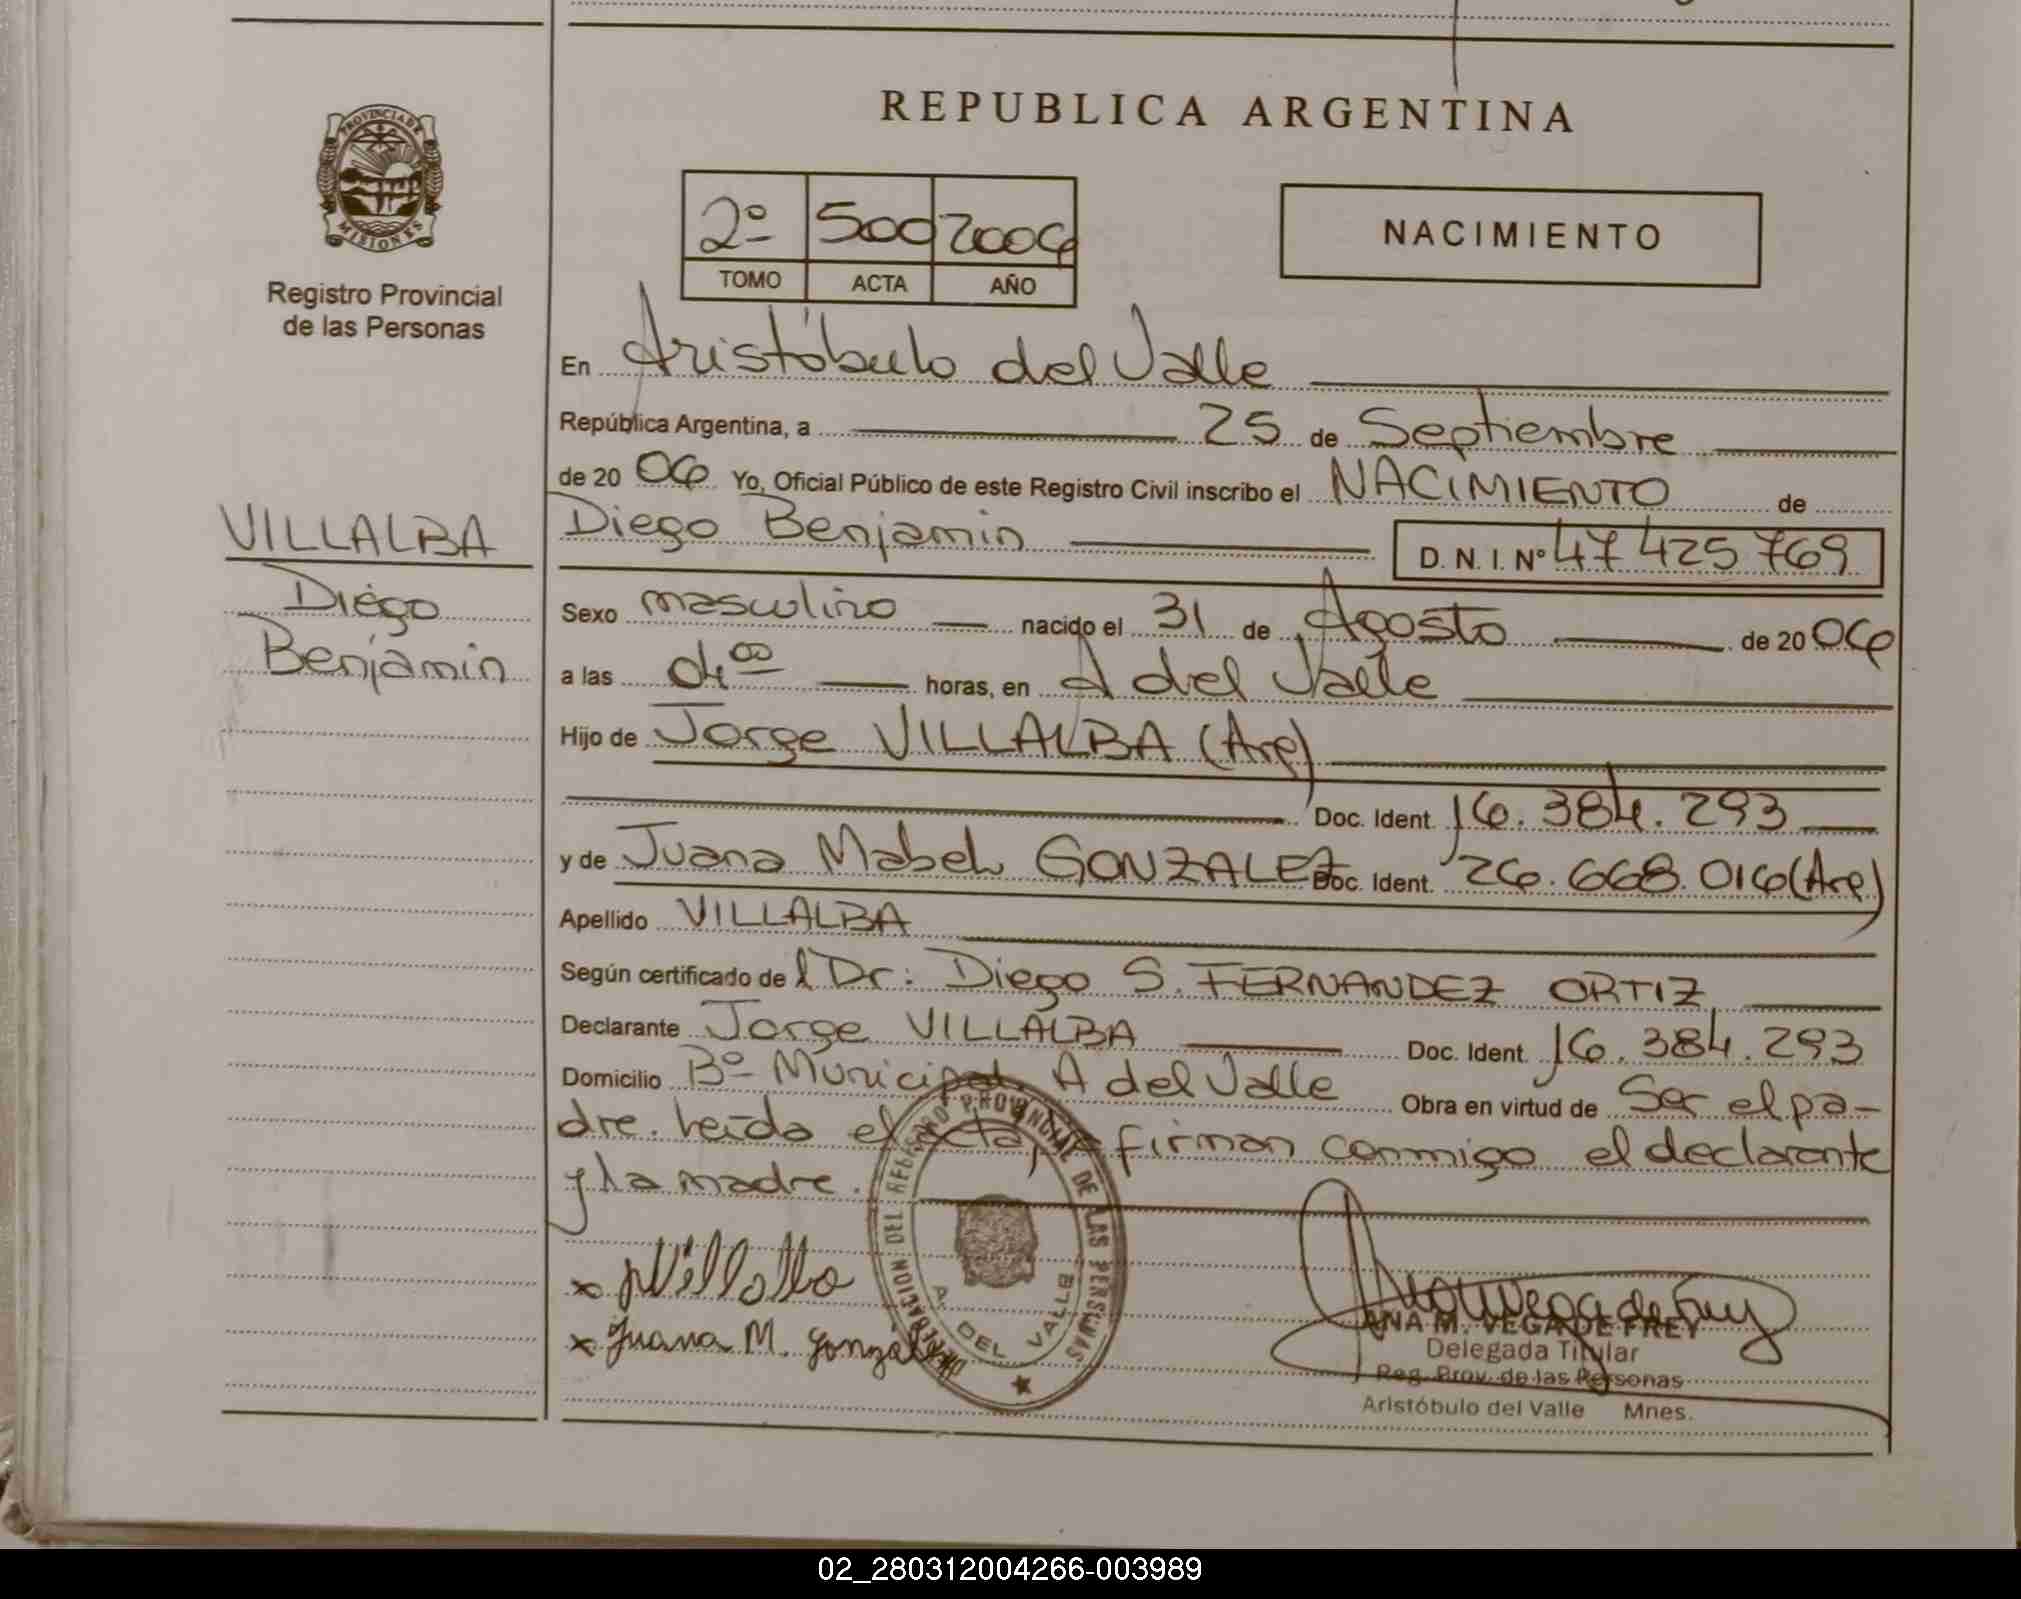 REPUBLICA ARGENTINA
PROVINCIA DE
MISIONES
Registro Provincial
de las Personas
2º 500 2006
TOMO ACTA AÑO
NACIMIENTO
En Aristóbulo del Valle
República Argentina, a 25 de Septiembre
de 20 06 Yo, Oficial Público de este Registro Civil inscribo el NACIMIENTO de
VILLALBA
Diego
Benjamin
Diego Benjamin D. N. I. Nº 47 425 769
Sexo masculino nacido el 31 de Agosto de 20 06
a las 4 00 horas, en A del Valle
Hijo de Jorge VILLALBA (Arg)
Doc. Ident. 16.384.293
y de Juana Mabel GONZALEZ Doc. Ident. 26.668.016 (Arg)
Apellido VILLALBA
Según certificado de l Dr: Diego S. FERNANDEZ ORTIZ
Declarante Jorge VILLALBA Doc. Ident. 16.384.293
Domicilio Bº Municipal A del Valle Obra en virtud de Ser el pa-
dre. Leída el acta, firman conmigo el declarante
y la madre.
DELEGACION DEL REGISTRO PROVINCIAL DE LAS PERSONAS
A. DEL VALLE
x Villalba
x Juana M. Gonzalez
ANA M. VEGA DE FREY
Delegada Titular
Reg. Prov. de las Personas
Aristóbulo del Valle Mnes.
02_280312004266-003989